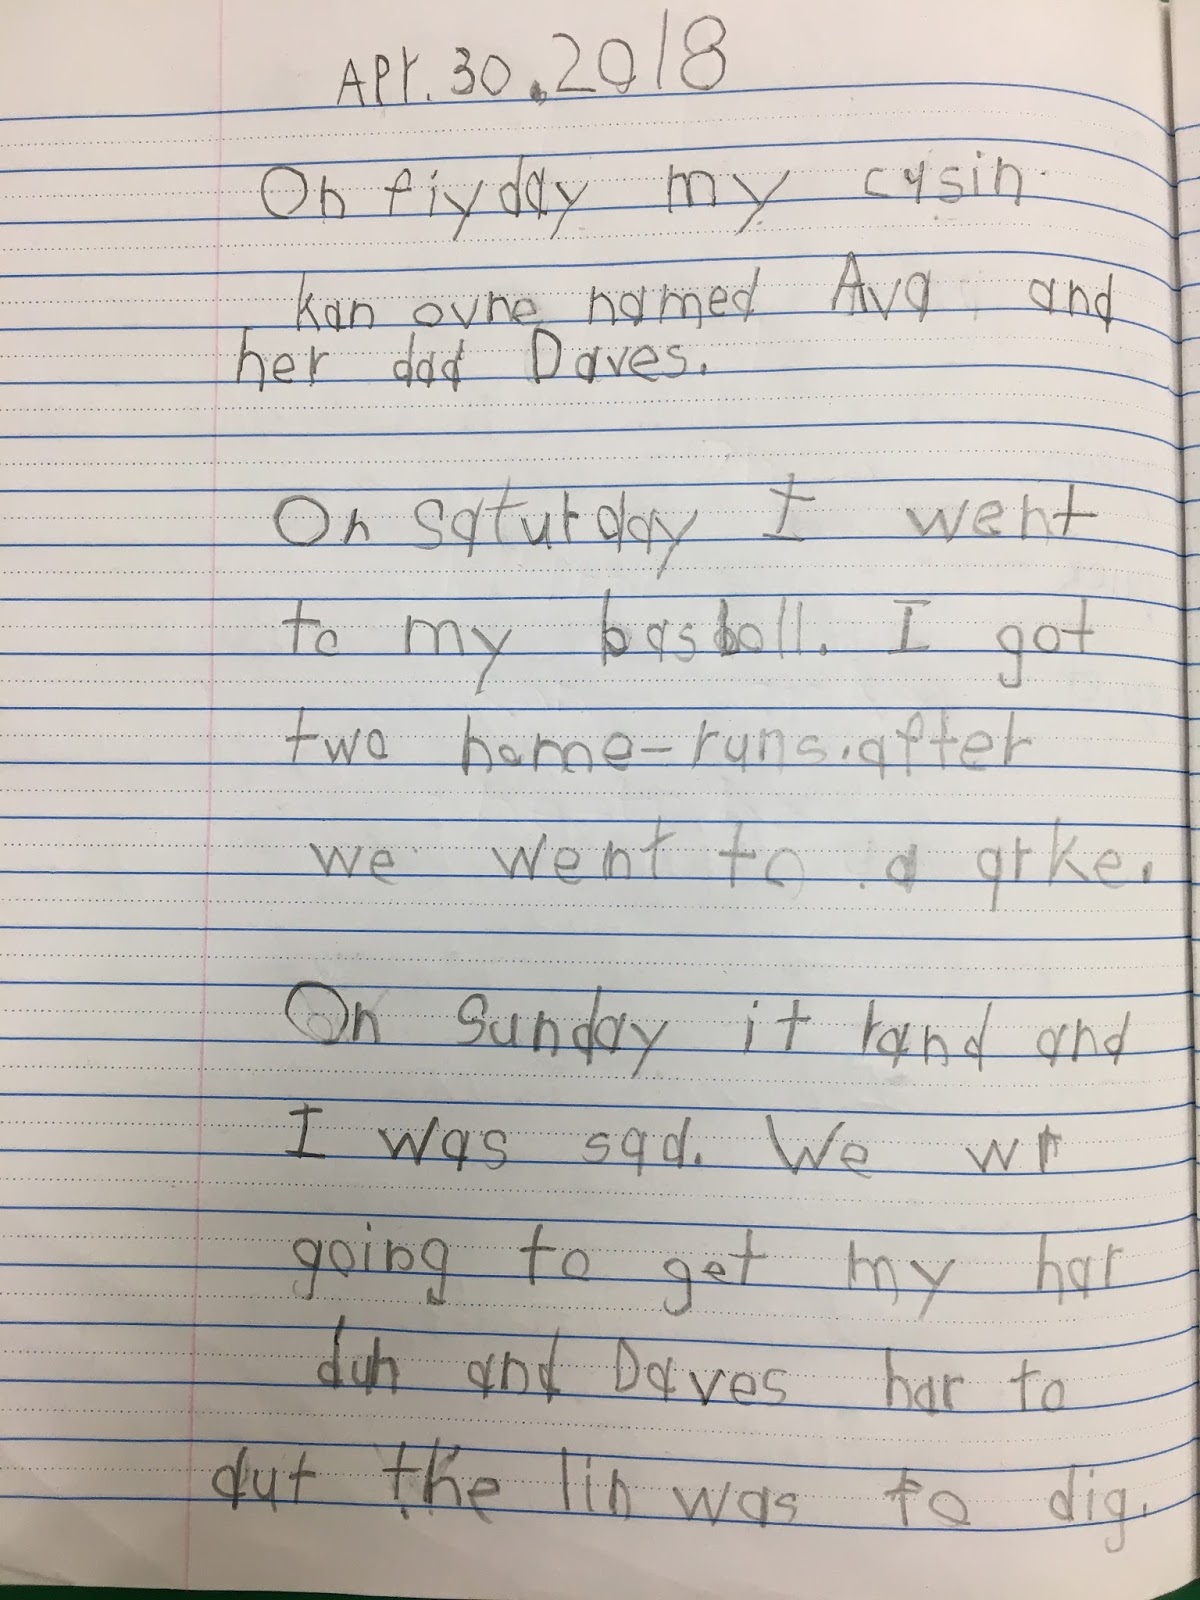 APr. 30.2018
On fiyday my cysin
kan ovne named Ava and
her dad Daves.
On saturday I went
to my basboll. I got
two home-runs.after
we went to a arke.
On Sunday it rand and
I was sad. We wr
going to get my har
duh and Daves har to
dut the lin was to dig.